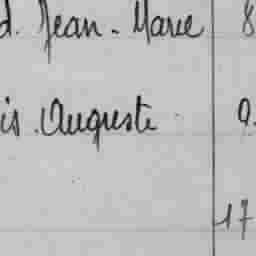 d. Jean-Marie 8
is Auguste 9.
17